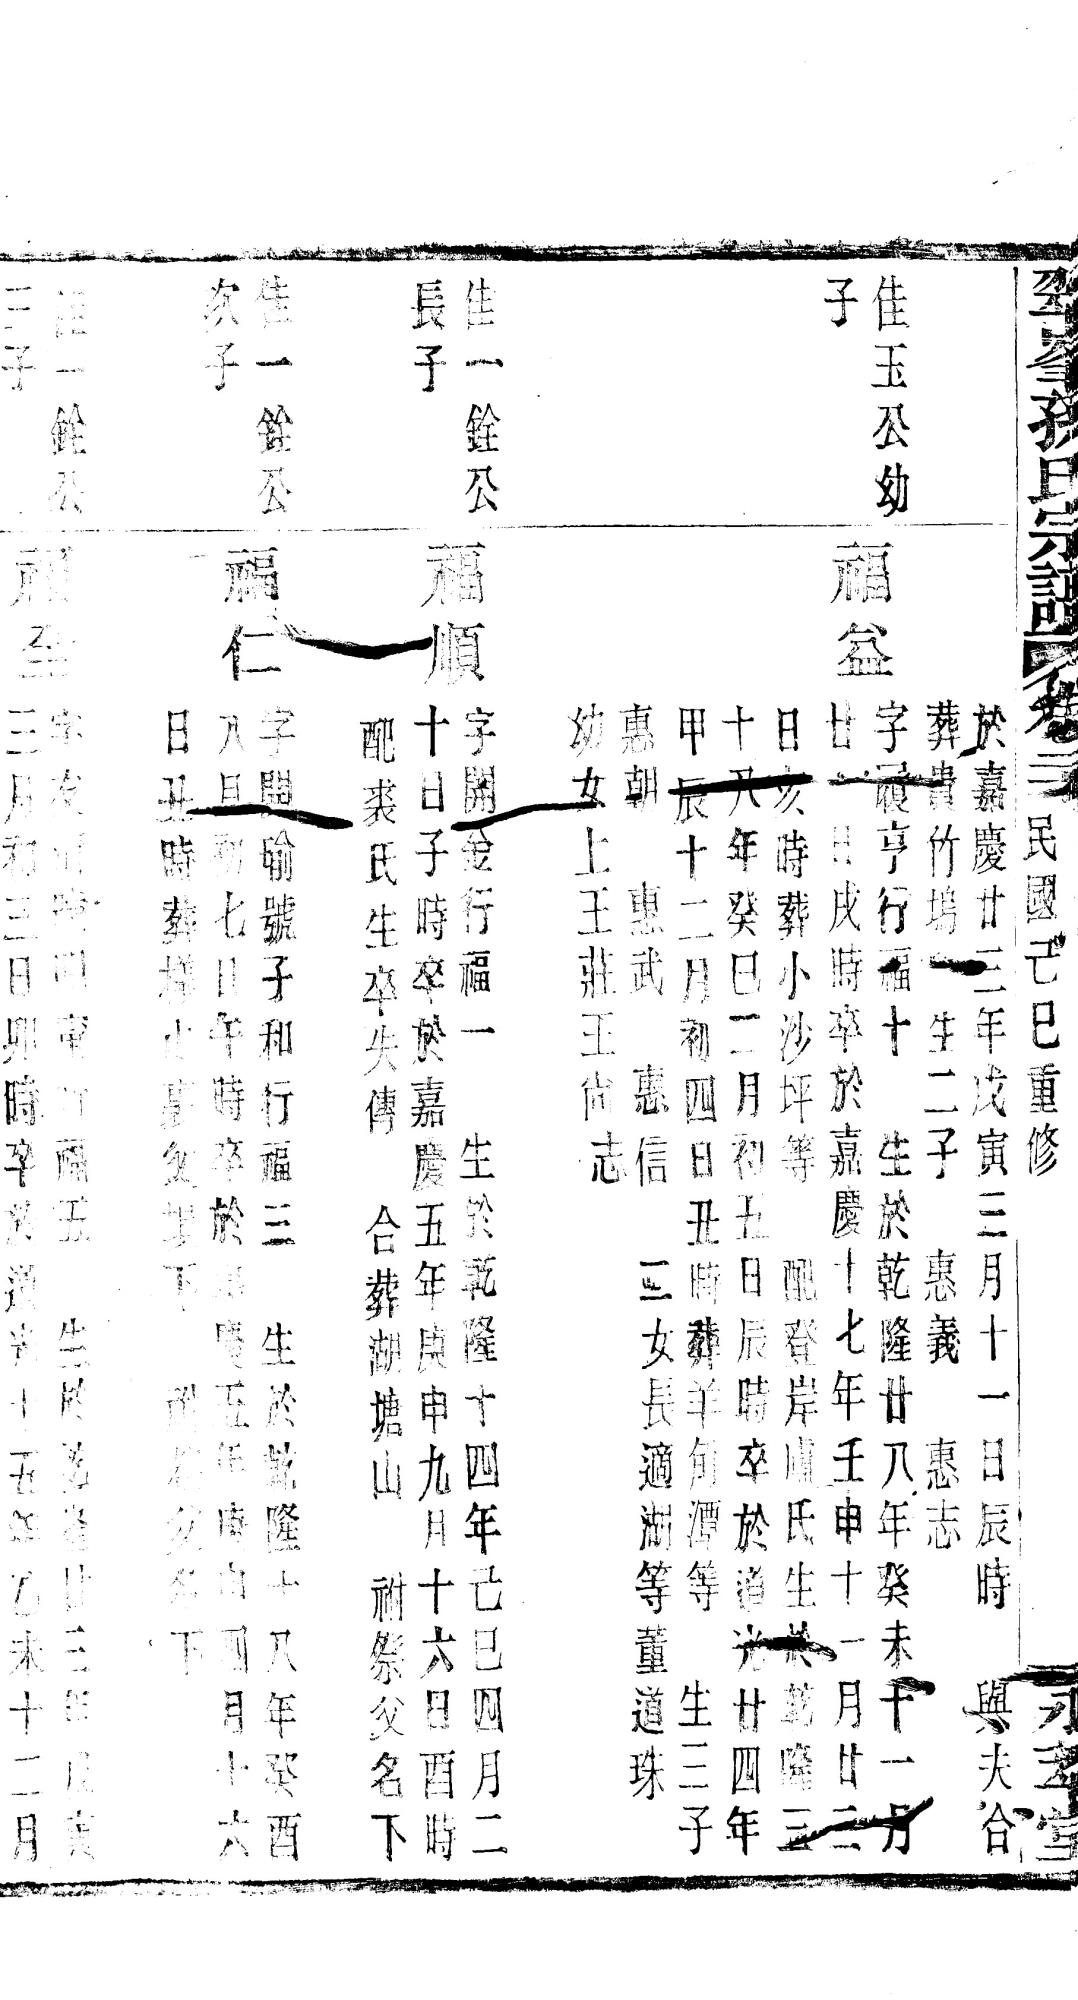 孫氏宗譜 卷 民國己巳重修
於嘉慶廿三年戊寅三月十一日辰時 與夫合
葬貴竹塢 生二子 惠義 惠志
佳玉公幼
子
福益
字履亨行福十 生於乾隆廿八年癸未十一月
廿 日戌時卒於嘉慶十七年壬申十一月廿二
日亥時葬小沙坪等 配登岸 氏生於乾隆三
十八年癸巳二月初五日辰時卒於道光廿四年
甲辰十二月初四日丑時葬羊 潭等 生三子
惠朝 惠武 惠信 三女長適湖等董道珠
幼女上王莊王尚志
佳一銓公
長子
福順
字開金行福一 生於乾隆十四年己巳四月二
十日子時卒於嘉慶五年庚申九月十六日酉時
配裘氏生卒失傳 合葬湖塘山 祔祭父名下
佳一銓公
次子
福仁
字開 號子和行福三 生於乾隆十八年癸酉
八月初七日午時卒於嘉慶五年庚申四月十六
日丑時葬 父 下 父名下
佳一銓公
三子
福至
字友 行福五 生於乾隆廿三年戊寅
三月初三日卯時卒於道光十五年乙未十二月